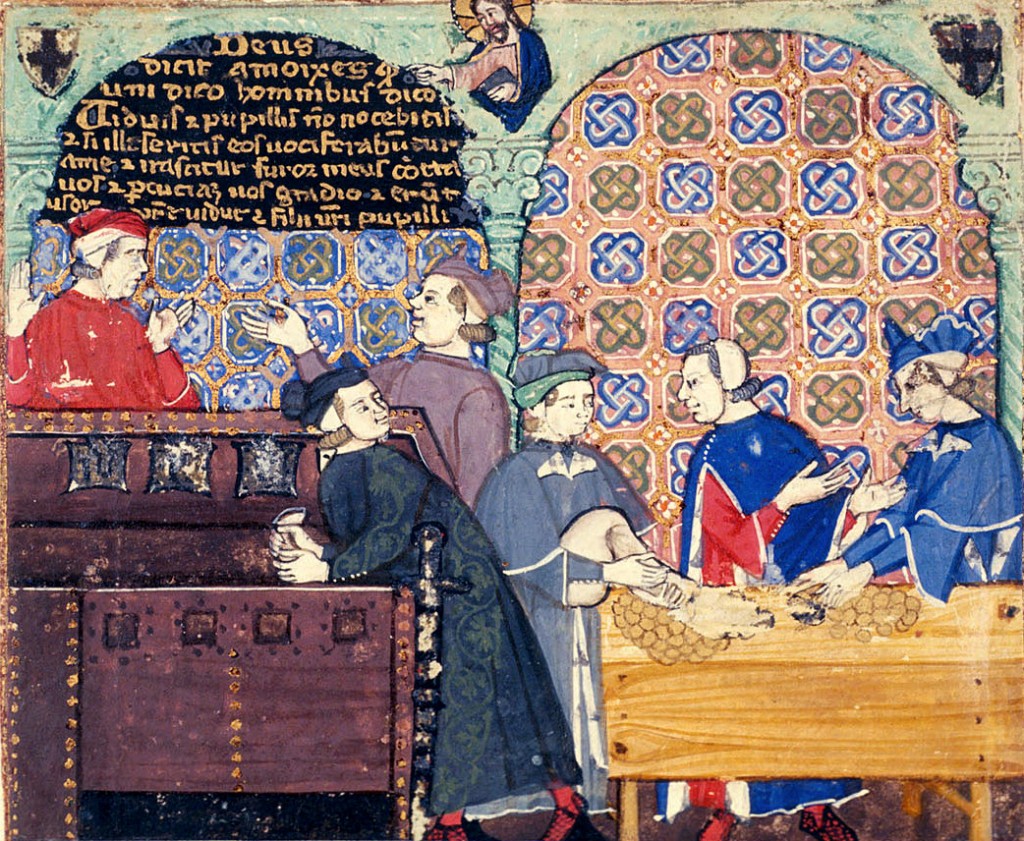 Deus
dicit amoixes q
uni dico hominibus dico
Viduis ⁊ pupillis no nocebitis
⁊ si illeseritis eos vociferabū
ame ⁊ irascitur furor meus cōtra
uos ⁊ pcuciā uos gladio ⁊ erūt
uidue ⁊ filii ur̄i pupilli